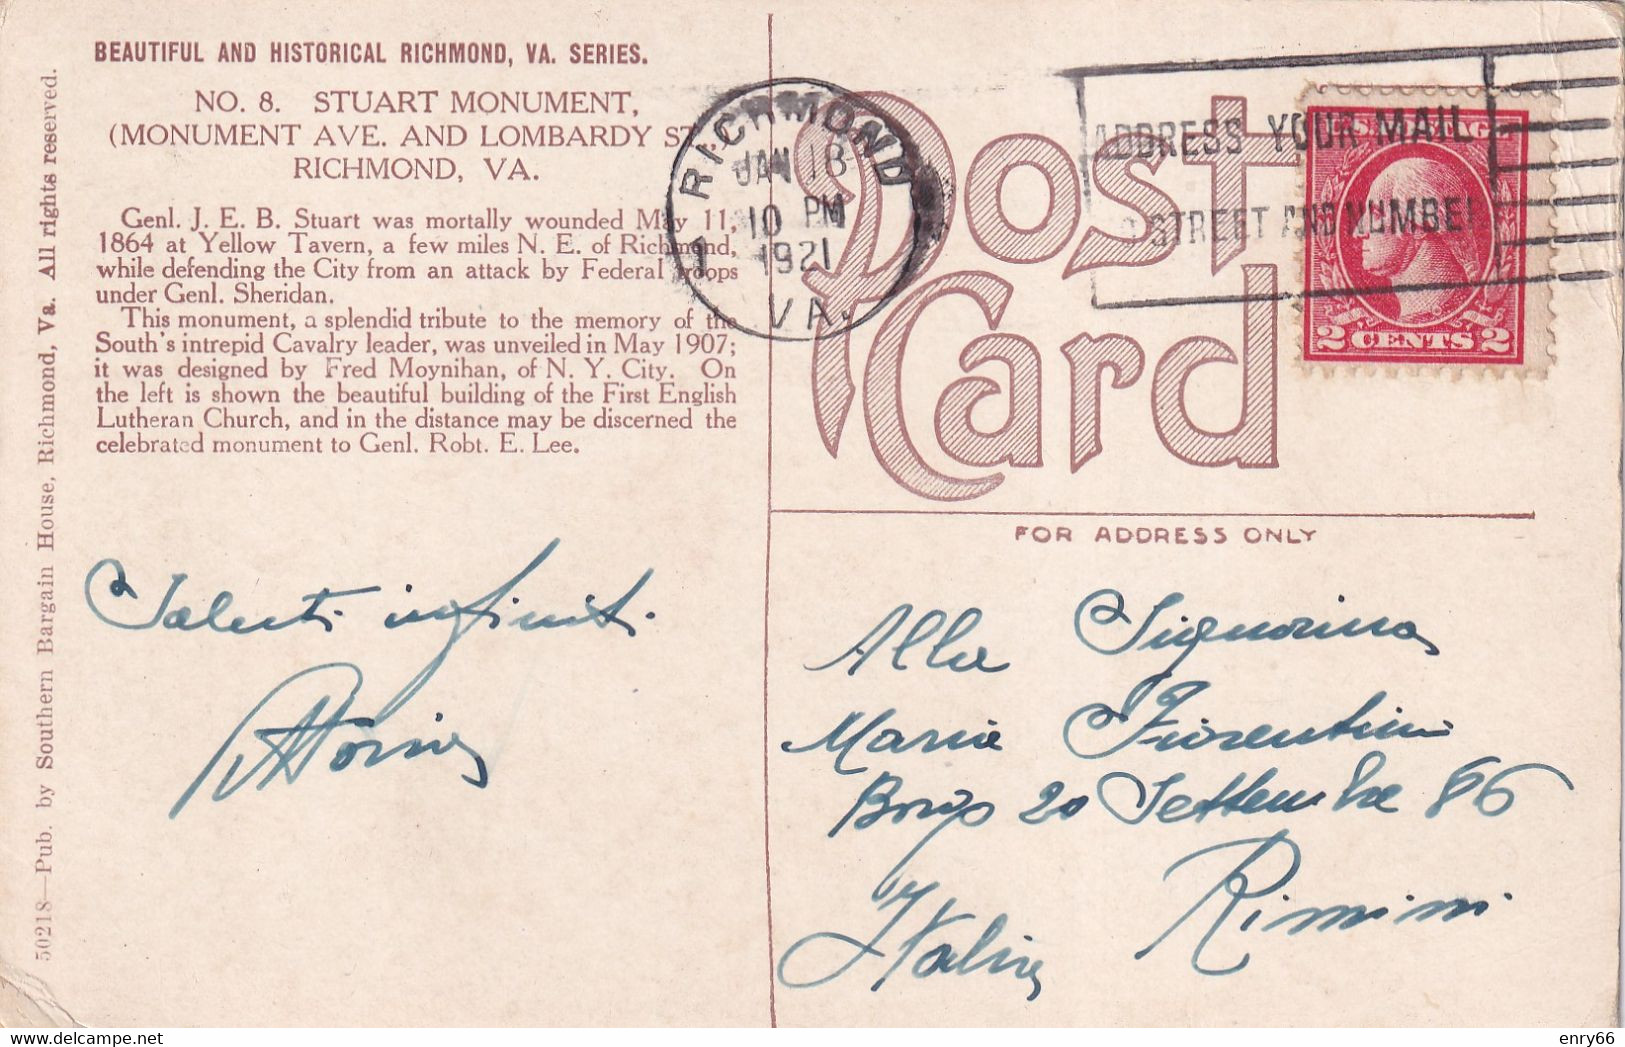 BEAUTIFUL AND HISTORICAL RICHMOND, VA. SERIES.
NO. 8. STUART MONUMENT,
(MONUMENT AVE. AND LOMBARDY ST.,
RICHMOND, VA.
Genl. J. E. B. Stuart was mortally wounded May 11,
1864 at Yellow Tavern, a few miles N. E. of Richmond,
while defending the City from an attack by Federal troops
under Genl. Sheridan.
This monument, a splendid tribute to the memory of the
South's intrepid Cavalry leader, was unveiled in May 1907;
it was designed by Fred Moynihan, of N. Y. City. On
the left is shown the beautiful building of the First English
Lutheran Church, and in the distance may be discerned the
celebrated monument to Genl. Robt. E. Lee.
50218—Pub. by Southern Bargain House, Richmond, Va. All rights reserved.
Saluti infiniti.
RICHMOND
JAN 18
10 PM
1921
VA.
ADDRESS YOUR MAIL
STREET AND NUMBER
U.S. POSTAGE
2 CENTS 2
Post
Card
FOR ADDRESS ONLY
Alla Signorina
Maria Fiorentini
Borgo 20 Settembre 86
Rimini
Italia
delcampe.net
enry66